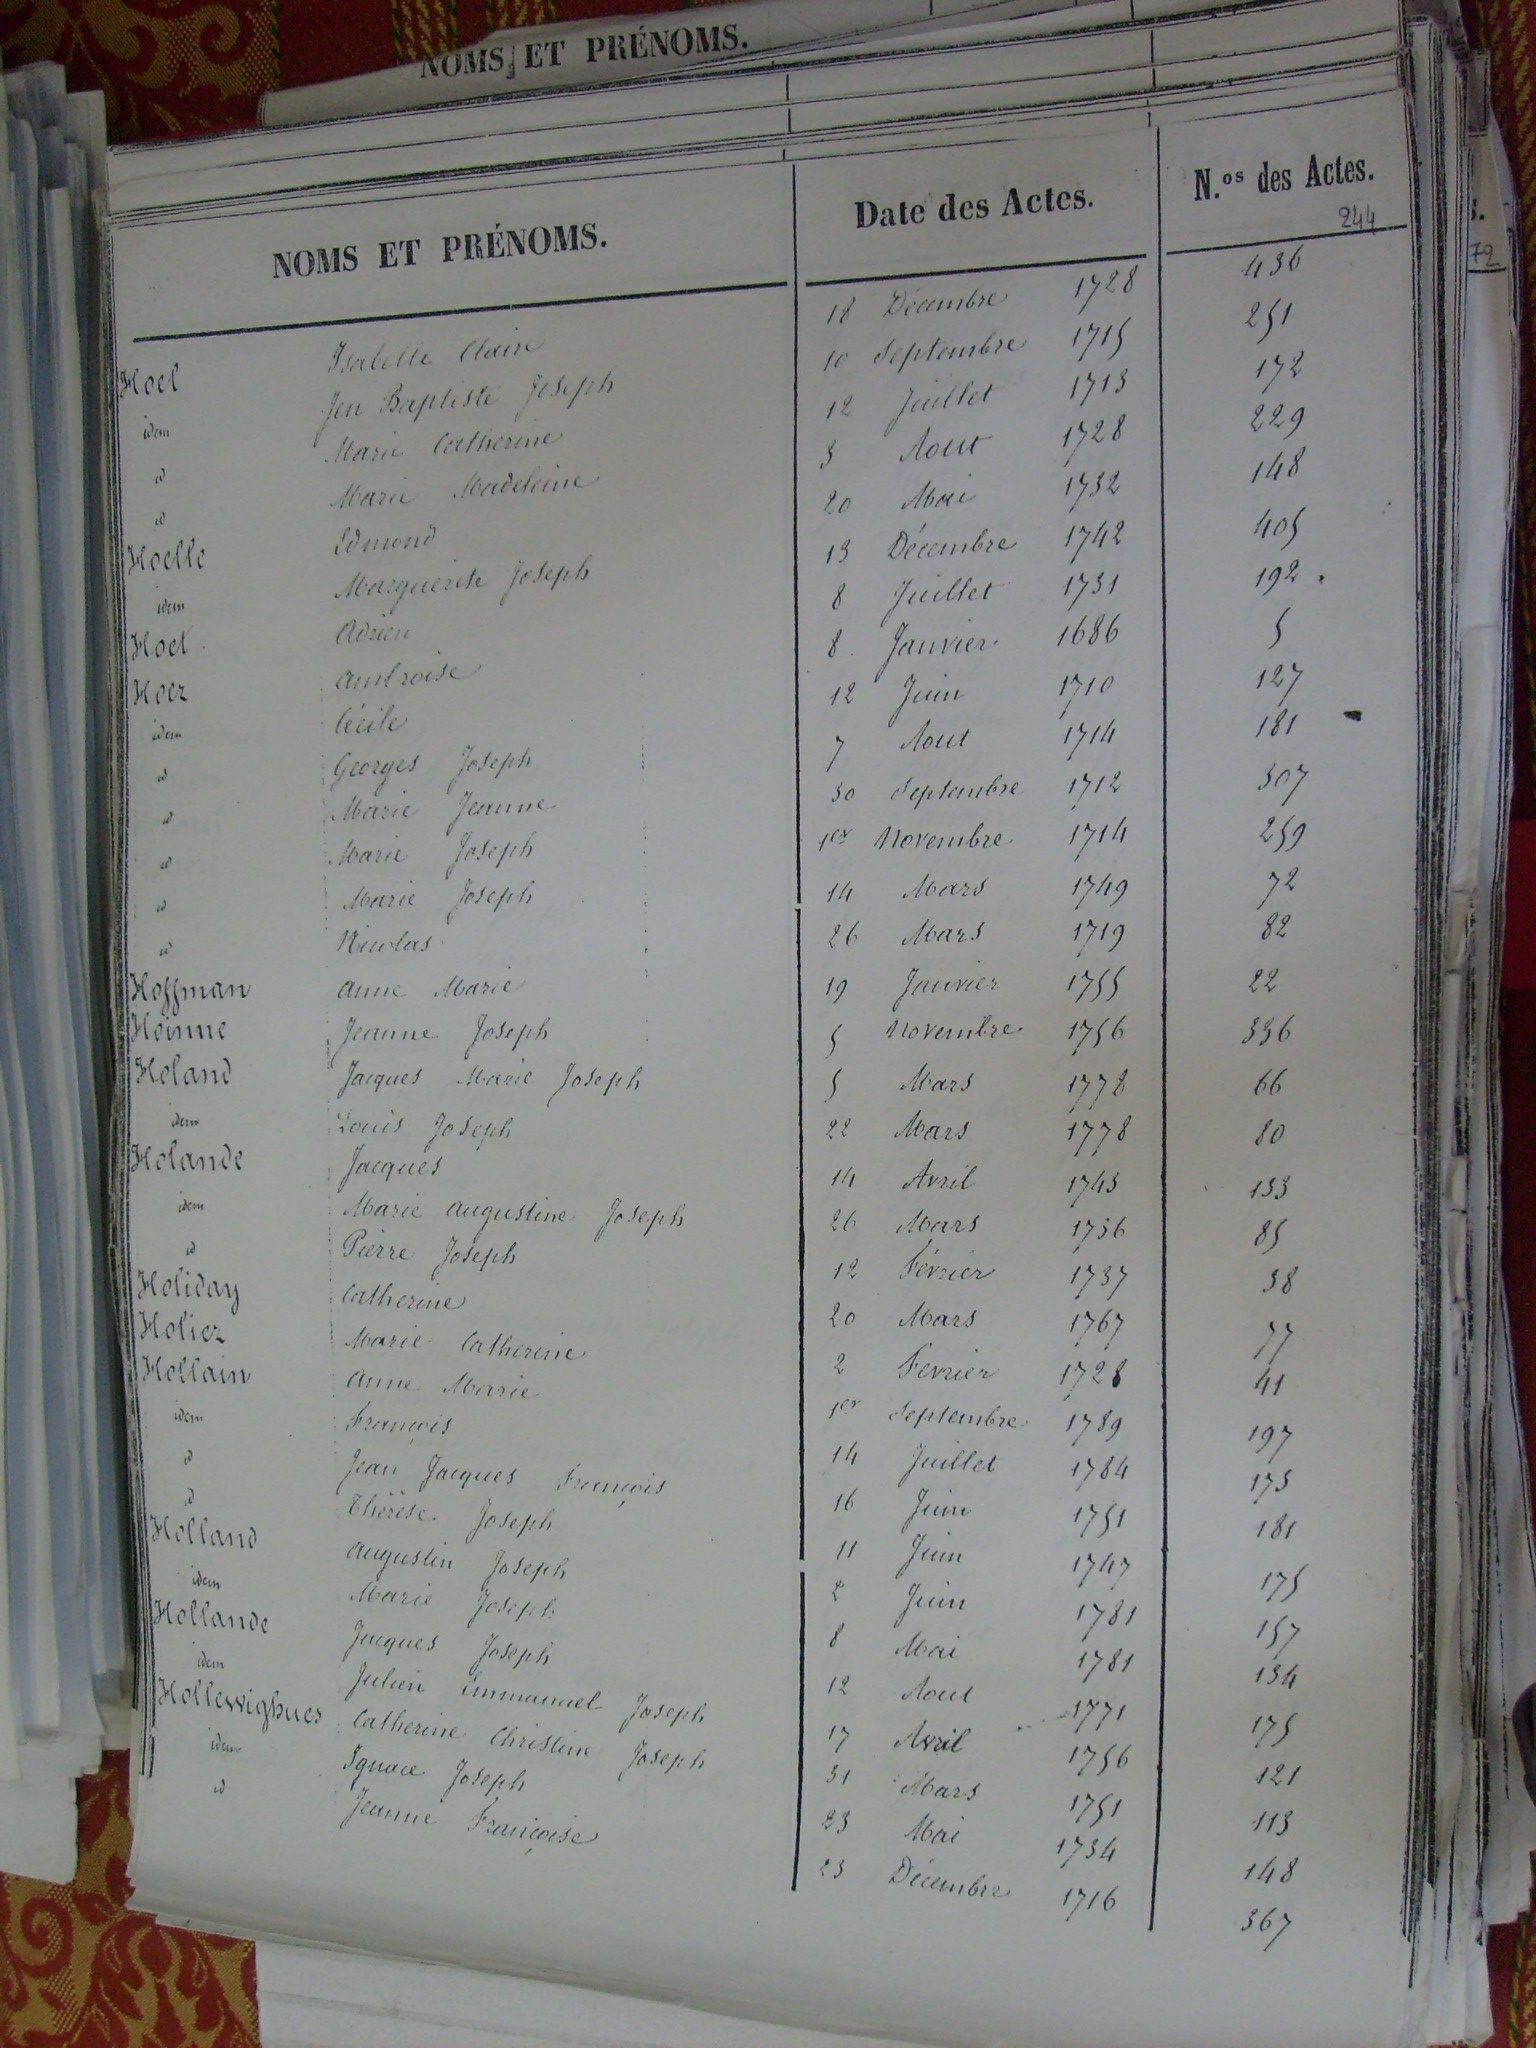 NOMS ET PRÉNOMS.
NOMS ET PRÉNOMS. Date des Actes. N.os des Actes.
244
72
Hoel Isabelle Claire 18 Décembre 1728 436
idem Jen Baptiste Joseph 10 Septembre 1715 251
id Marie Catherine 12 Juillet 1713 172
id Marie Madeleine 3 Aout 1728 229
Hoelle Edmond 20 Mai 1732 148
idem Marguerite Joseph 13 Décembre 1742 405
Hoet Adrien 8 Juillet 1731 192
Hoez Ambroise 8 Janvier 1686 5
idem Cécile 12 Juin 1710 127
id Georges Joseph 7 Aout 1714 181
id Marie Jeanne 30 Septembre 1712 307
id Marie Joseph 1er Novembre 1714 259
id Marie Joseph 14 Mars 1749 72
id Nicolas 26 Mars 1719 82
Hoffman Anne Marie 19 Janvier 1755 22
Hoinne Jeanne Joseph 5 Novembre 1756 336
Holand Jacques Marie Joseph 5 Mars 1778 66
idem Louis Joseph 22 Mars 1778 80
Holande Jacques 14 Avril 1743 133
idem Marie Augustine Joseph 26 Mars 1736 85
id Pierre Joseph 12 Février 1737 38
Holiday Catherine 20 Mars 1767 77
Holiez Marie Catherine 2 Fevrier 1728 41
Hollain Anne Marie 1er Septembre 1789 197
idem François 14 Juillet 1784 173
id Jean Jacques François 16 Juin 1751 181
id Thérèse Joseph 11 Juin 1747 175
Holland Augustin Joseph 2 Juin 1781 157
idem Marie Joseph 8 Mai 1781 134
Hollande Jacques Joseph 12 Aout 1771 175
idem Julien Emmanuel Joseph 17 Avril 1756 121
Hollewighues Catherine Christine Joseph 31 Mars 1751 113
idem Ignace Joseph 23 Mai 1734 148
id Jeanne Françoise 23 Décembre 1716 367